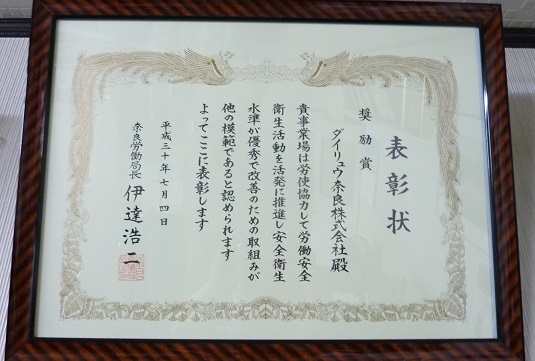 表彰状
奨励賞
ダイリュウ奈良株式会社殿
貴事業場は労使協力して労働安全
衛生活動を活発に推進し安全衛生
水準が優秀で改善のための取組みが
他の模範であると認められます
よってここに表彰します
平成三十年七月四日
奈良労働局長 伊達浩二